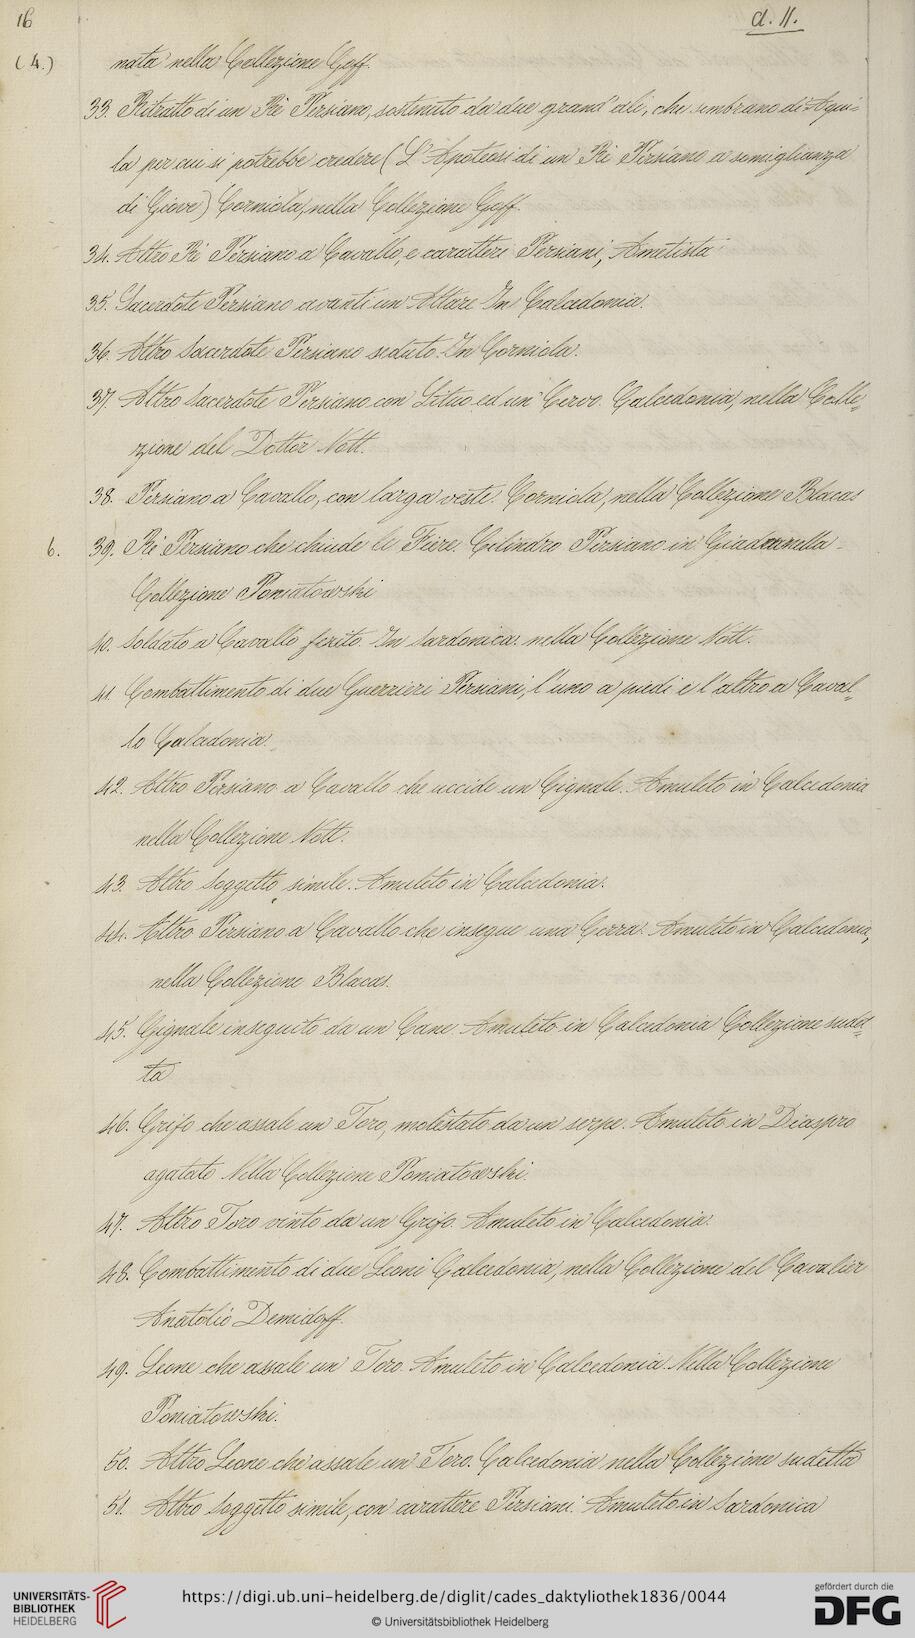 16
d. 11.
(4.)
nata nella Collezione Goff.
33. Ritratto di un Rè Persiano, sostenuto da due grand' ali, che sembrano di Aqui=
la per cui si potrebbe credere (L'Apoteosi di un Rè Persiano a somiglianza
di Giove) Corniola, nella Collezione Goff.
34. Altro Rè Persiano a Cavallo, e caratteri Persiani, Ametista
35. Sacerdote Persiano avanti un Altare In Calcedonia.
36. Altro Sacerdote Persiano seduto. In Corniola.
37. Altro Sacerdote Persiano con Lituo ed un Cervo. Calcedonia, nella Colle=
zione del Dottor Nott.
38. Persiano a Cavallo, con larga veste. Corniola, nella Collezione Blacas
6. 39. Rè Persiano che chiude le Fiere. Cilindro Persiano in Giada nella
Collezione Poniatowski
40. Soldato a Cavallo ferito. In Sardonica. nella Collezione Nott.
41. Combattimento di due Guerrieri Persiani, l'uno a piedi e l'altro a Caval=
lo Calcedonia.
42. Altro Persiano a Cavallo che uccide un Cignale. Amuleto in Calcedonia
nella Collezione Nott.
43. Altro Soggetto simile. Amuleto in Calcedonia.
44. Altro Persiano a Cavallo che insegue una Cerva. Amuleto in Calcedonia,
nella Collezione Blacas.
45. Cignale inseguito da un Cane Amuleto in Calcedonia Collezione sudet=
ta
46. Grifo che assale un Toro, molestato da un serpe. Amuleto in Diaspro
agatato Nella Collezione Poniatowski.
47. Altro Toro vinto da un Grifo. Amuleto in Calcedonia.
48. Combattimento di due Leoni Calcedonia, nella Collezione del Cavalier
Anatolio Demidoff.
49. Leone che assale un Toro. Amuleto in Calcedonia. Nella Collezione
Poniatowski.
50. Altro Leone che assale un Toro. Calcedonia nella Collezione sudetta
51. Altro Soggetto simile, con carattere Persiani. Amuleto in Sardonica
UNIVERSITÄTS-
BIBLIOTHEK
HEIDELBERG
https://digi.ub.uni-heidelberg.de/diglit/cades_daktyliothek1836/0044
© Universitätsbibliothek Heidelberg
gefördert durch die
DFG